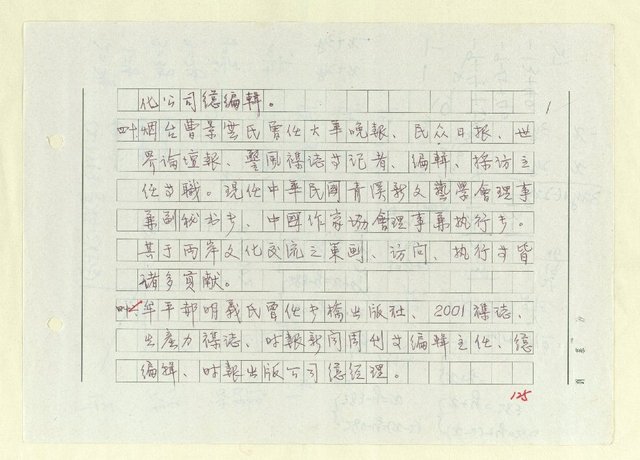 化公司總編輯。
四十、烟台曹景雲氏曾任大華晚報、民众日报、世
界論壇報、璽風襍誌等记者、编輯、採访主
任等職。現任中華民國青溪新文藝學會理事
兼副秘书长、中國作家協會理事兼执行长。
其于兩岸文化交流之策劃、访问、执行等皆
諸多貢献。
牟平郭明義氏曾任书橋出版社、2001襍誌、
生產力襍誌、时報新闻周刊等编輯主任、總
编輯、时報出版公司總经理。
125